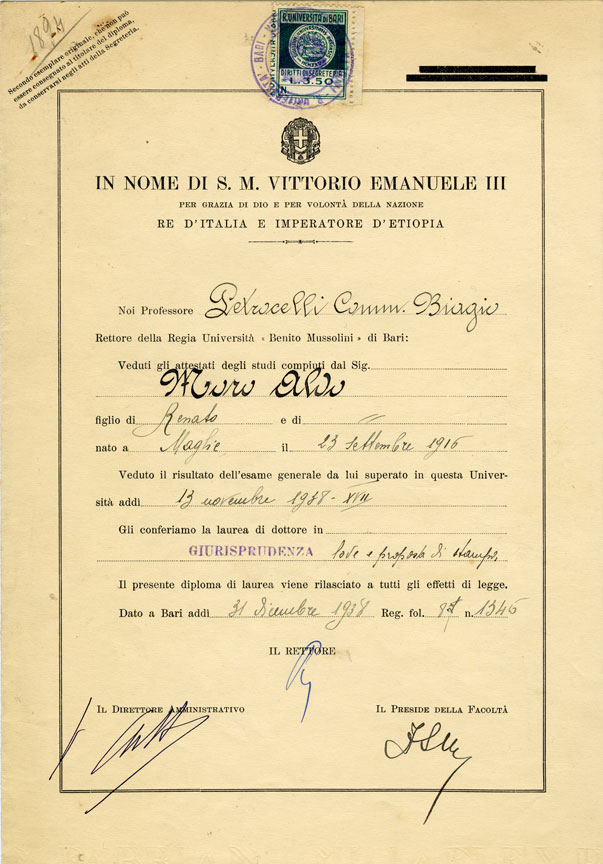 1894
Secondo esemplare originale, che non può
essere consegnato al titolare del diploma,
da conservarsi negli atti della Segreteria.
R. UNIVERSITÀ DI BARI
DIRITTI DI SEGRETERIA
L. 3.50
N.
IN NOME DI S. M. VITTORIO EMANUELE III
PER GRAZIA DI DIO E PER VOLONTÀ DELLA NAZIONE
RE D'ITALIA E IMPERATORE D'ETIOPIA
Noi Professore Petrocelli Comm. Biagio
Rettore della Regia Università « Benito Mussolini » di Bari:
Veduti gli attestati degli studi compiuti dal Sig.
Moro Aldo
figlio di Renato e di //
nato a Maglie il 23 settembre 1916
Veduto il risultato dell'esame generale da lui superato in questa Univer-
sità addì 13 novembre 1938 - XVII
Gli conferiamo la laurea di dottore in
GIURISPRUDENZA lode e proposta di stampa.
Il presente diploma di laurea viene rilasciato a tutti gli effetti di legge.
Dato a Bari addì 31 dicembre 1938 Reg. fol. n. 1346
IL RETTORE
IL DIRETTORE AMMINISTRATIVO
IL PRESIDE DELLA FACOLTÀ